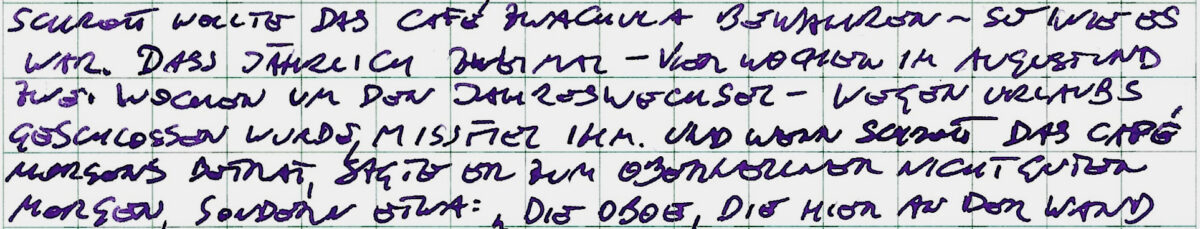 SCHROTT WOLLTE DAS CAFÉ ZWACHULA BEWAHREN – SO WIE ES
WAR. DASS JÄHRLICH ZWEIMAL – VIER WOCHEN IM AUGUST UND
ZWEI WOCHEN UM DEN JAHRESWECHSEL – WEGEN URLAUBS
GESCHLOSSEN WURDE, MISSFIEL IHM. UND WENN SCHROTT DAS CAFÉ
MORGENS BETRAT, SAGTE ER ZUM OBERKELLNER NICHT GUTEN
MORGEN, SONDERN ETWA: „DIE OBOE, DIE HIER AN DER WAND